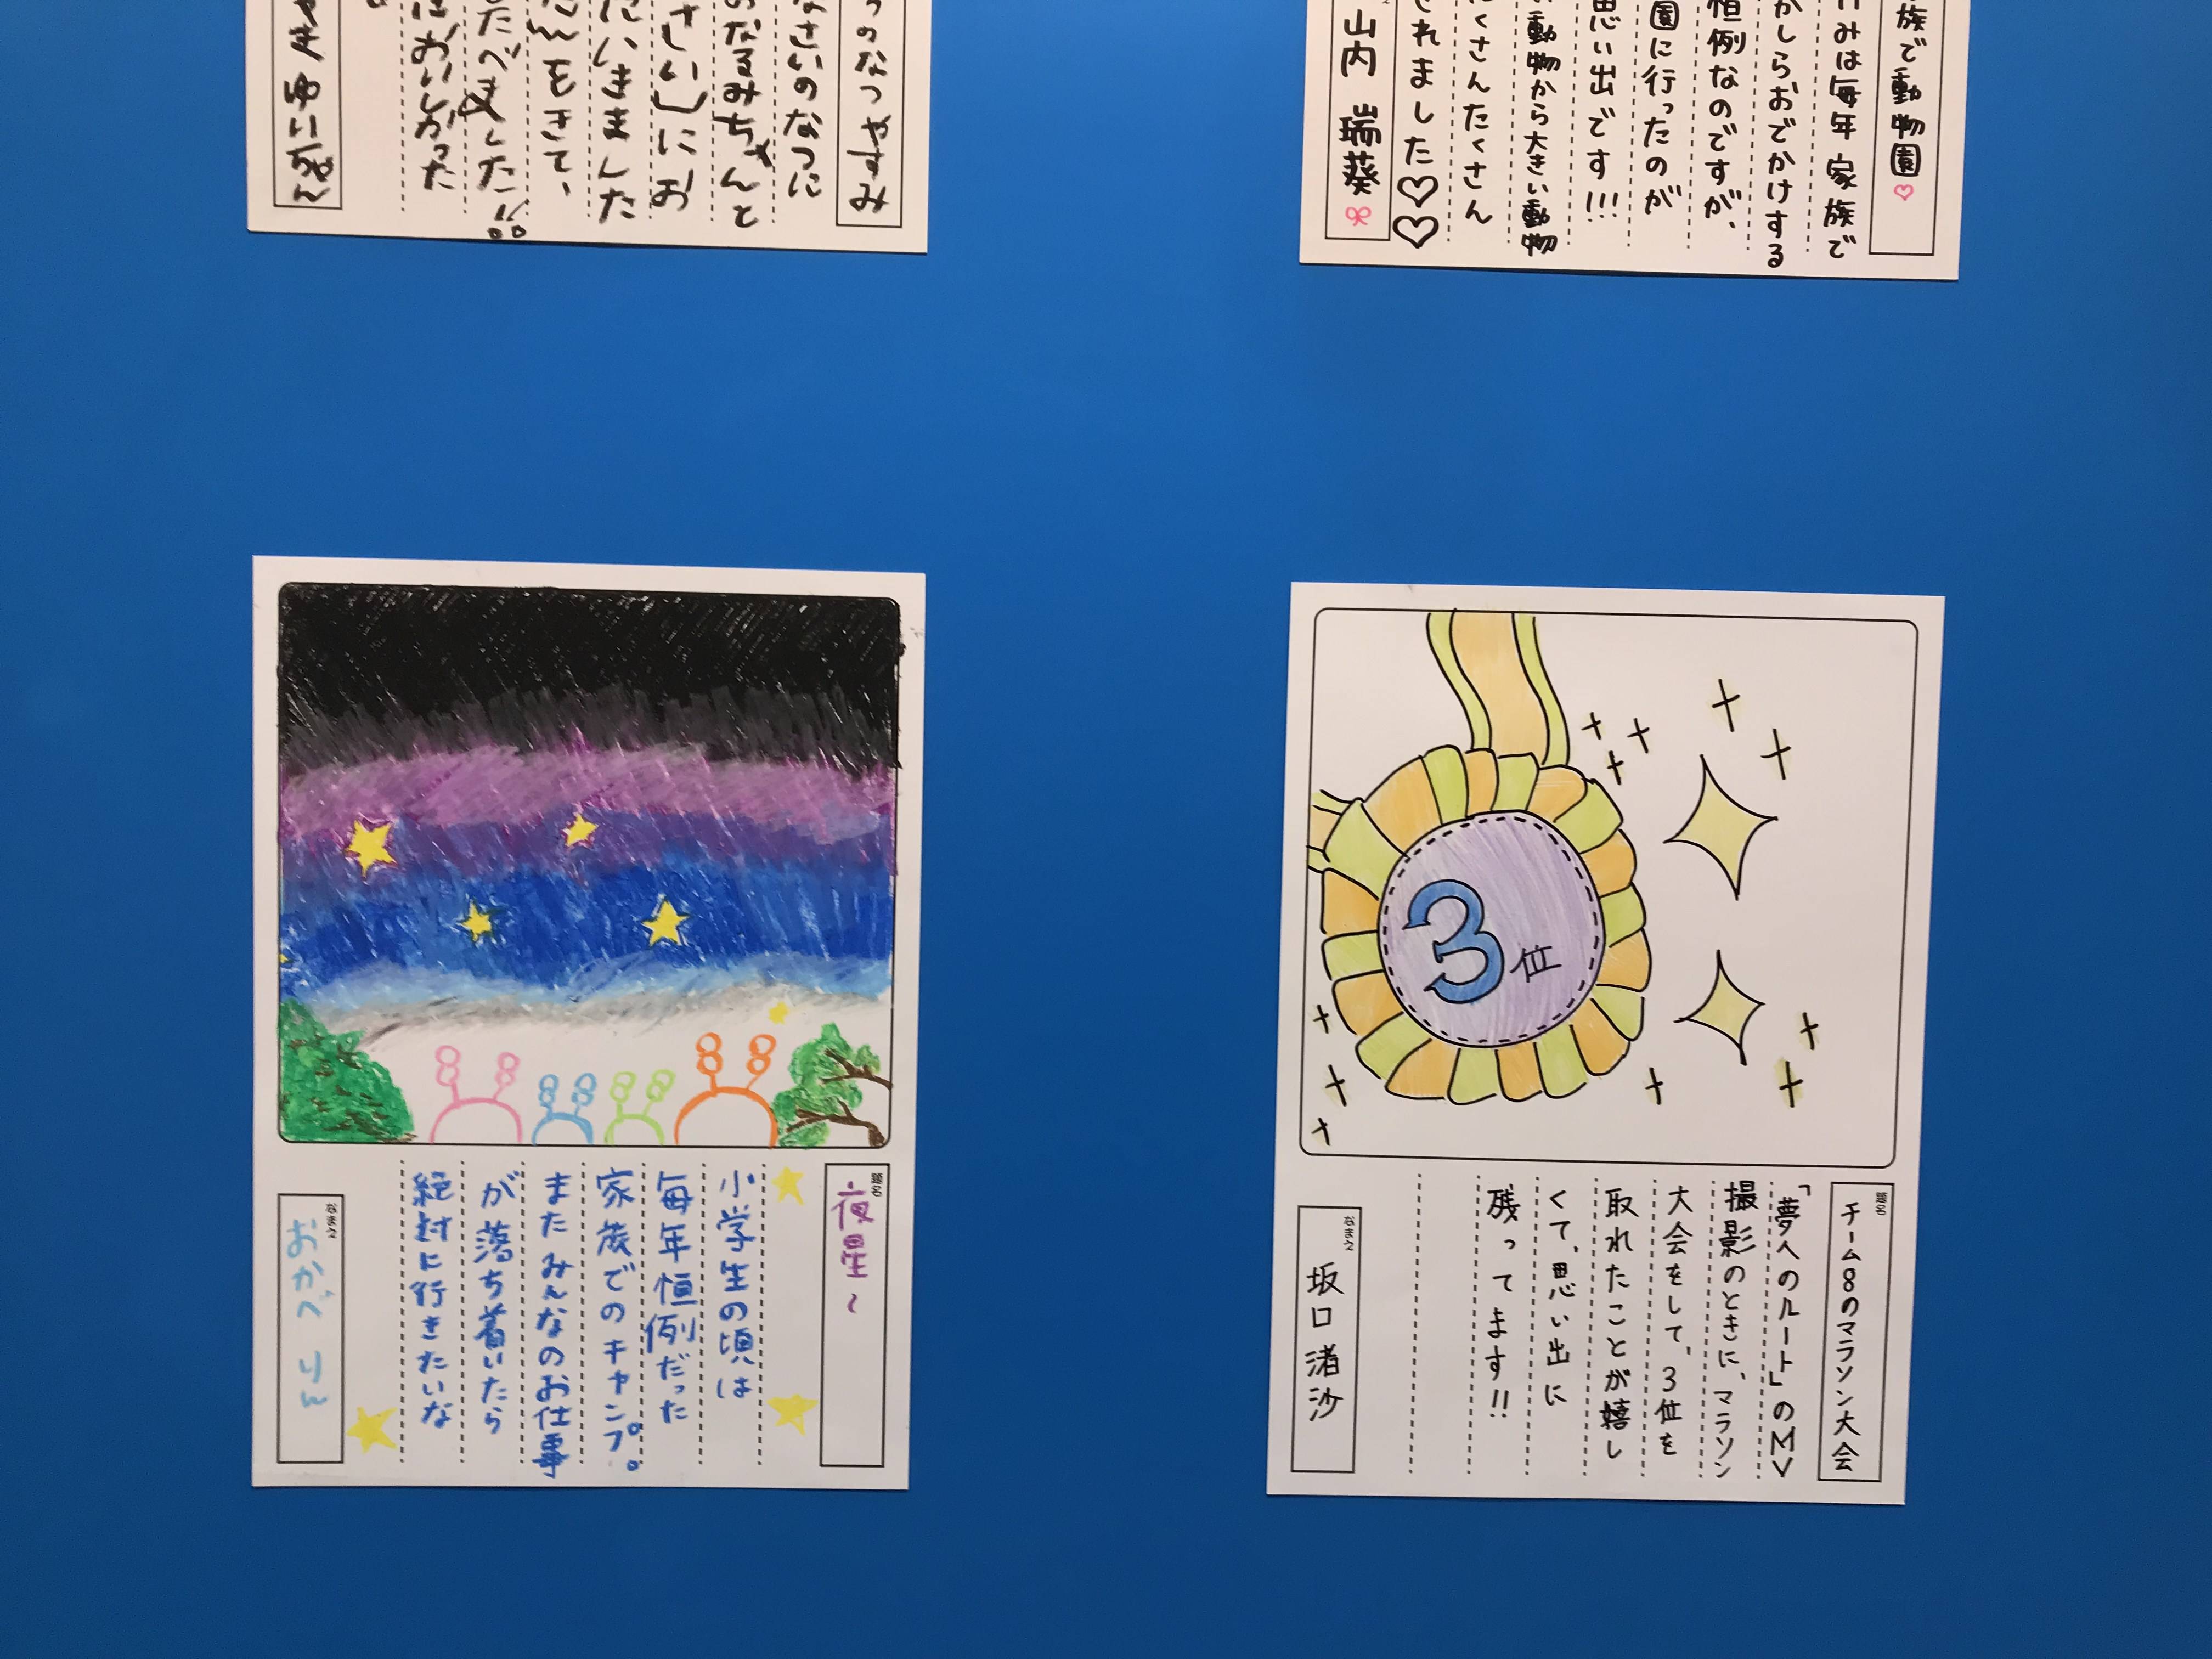 つのなつやすみ
なさいのなつに
のなるみちゃんと
さい」にお
にいきました
たべました!!
はおいしかった
ゆいちゃん
族で動物園♡
みは毎年家族で
かしらおでかけする
恒例なのですが、
園に行ったのが
思い出です!!!
い動物から大きい動物
たくさんたくさん
れました♡♡
山内 瑞葵
題名
夜星~
小学生の頃は
毎年恒例だった
家族でのキャンプ。
またみんなのお仕事
が落ち着いたら
絶対に行きたいな
なまえ
おかべ りん
3位
題名
チーム8のマラソン大会
「夢へのルート」のMV
撮影のときに、マラソン
大会をして、3位を
取れたことが嬉し
くて、思い出に
残ってます!!
なまえ
坂口 渚沙